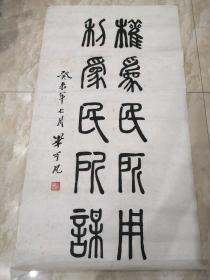 權為民所用
利為民所謀
癸未年七月